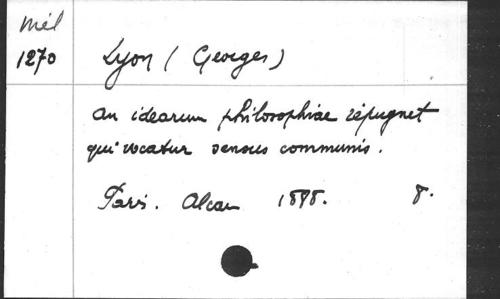 Mél
1270
Lyon (Georges)
an idearum philosophiae répugnet
qui vocatur sensus communis.
Paris. Alcan 1888. 8.